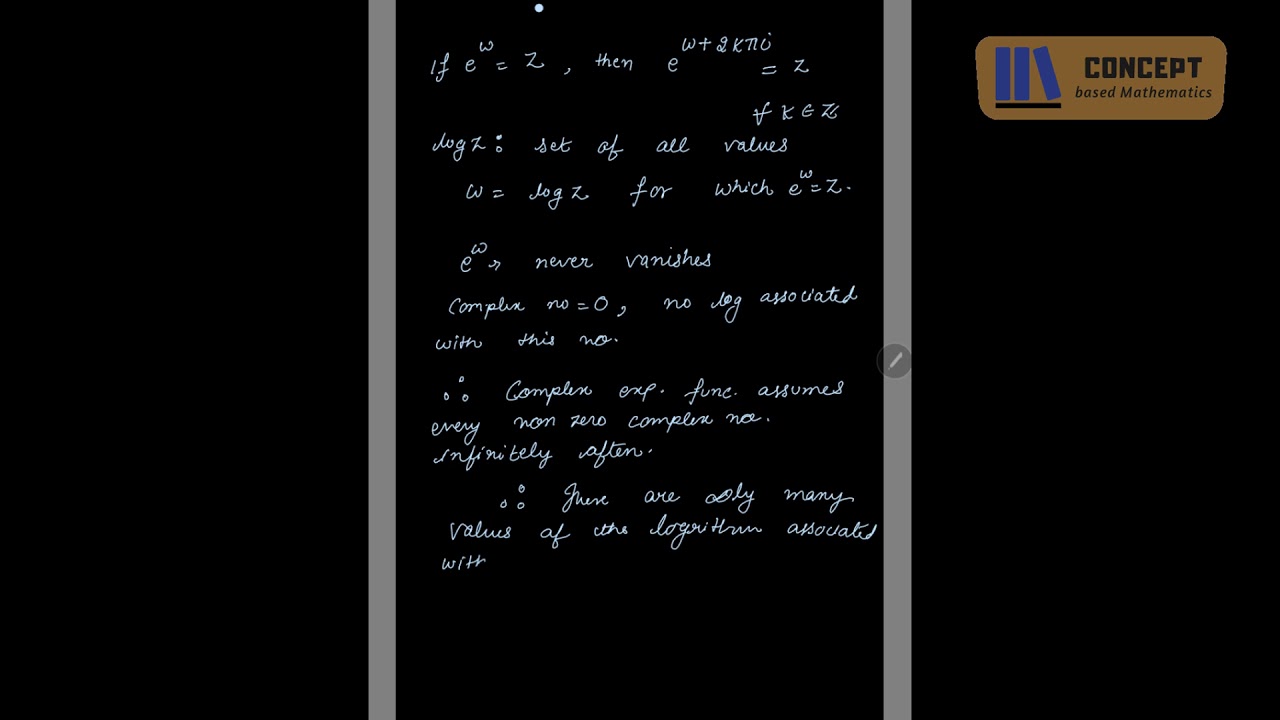 If e^ω = z , then e^ω+2kπi = z
∀ k ∈ ℤ
log z : set of all values
ω = log z for which e^ω = z.
e^ω → never vanishes
Complex no = 0 , no log associated
with this no.
∴ Complex exp. func. assumes
every non zero complex no.
infinitely often.
∴ There are ∞ly many
values of the logrithm associated
with
CONCEPT
based Mathematics